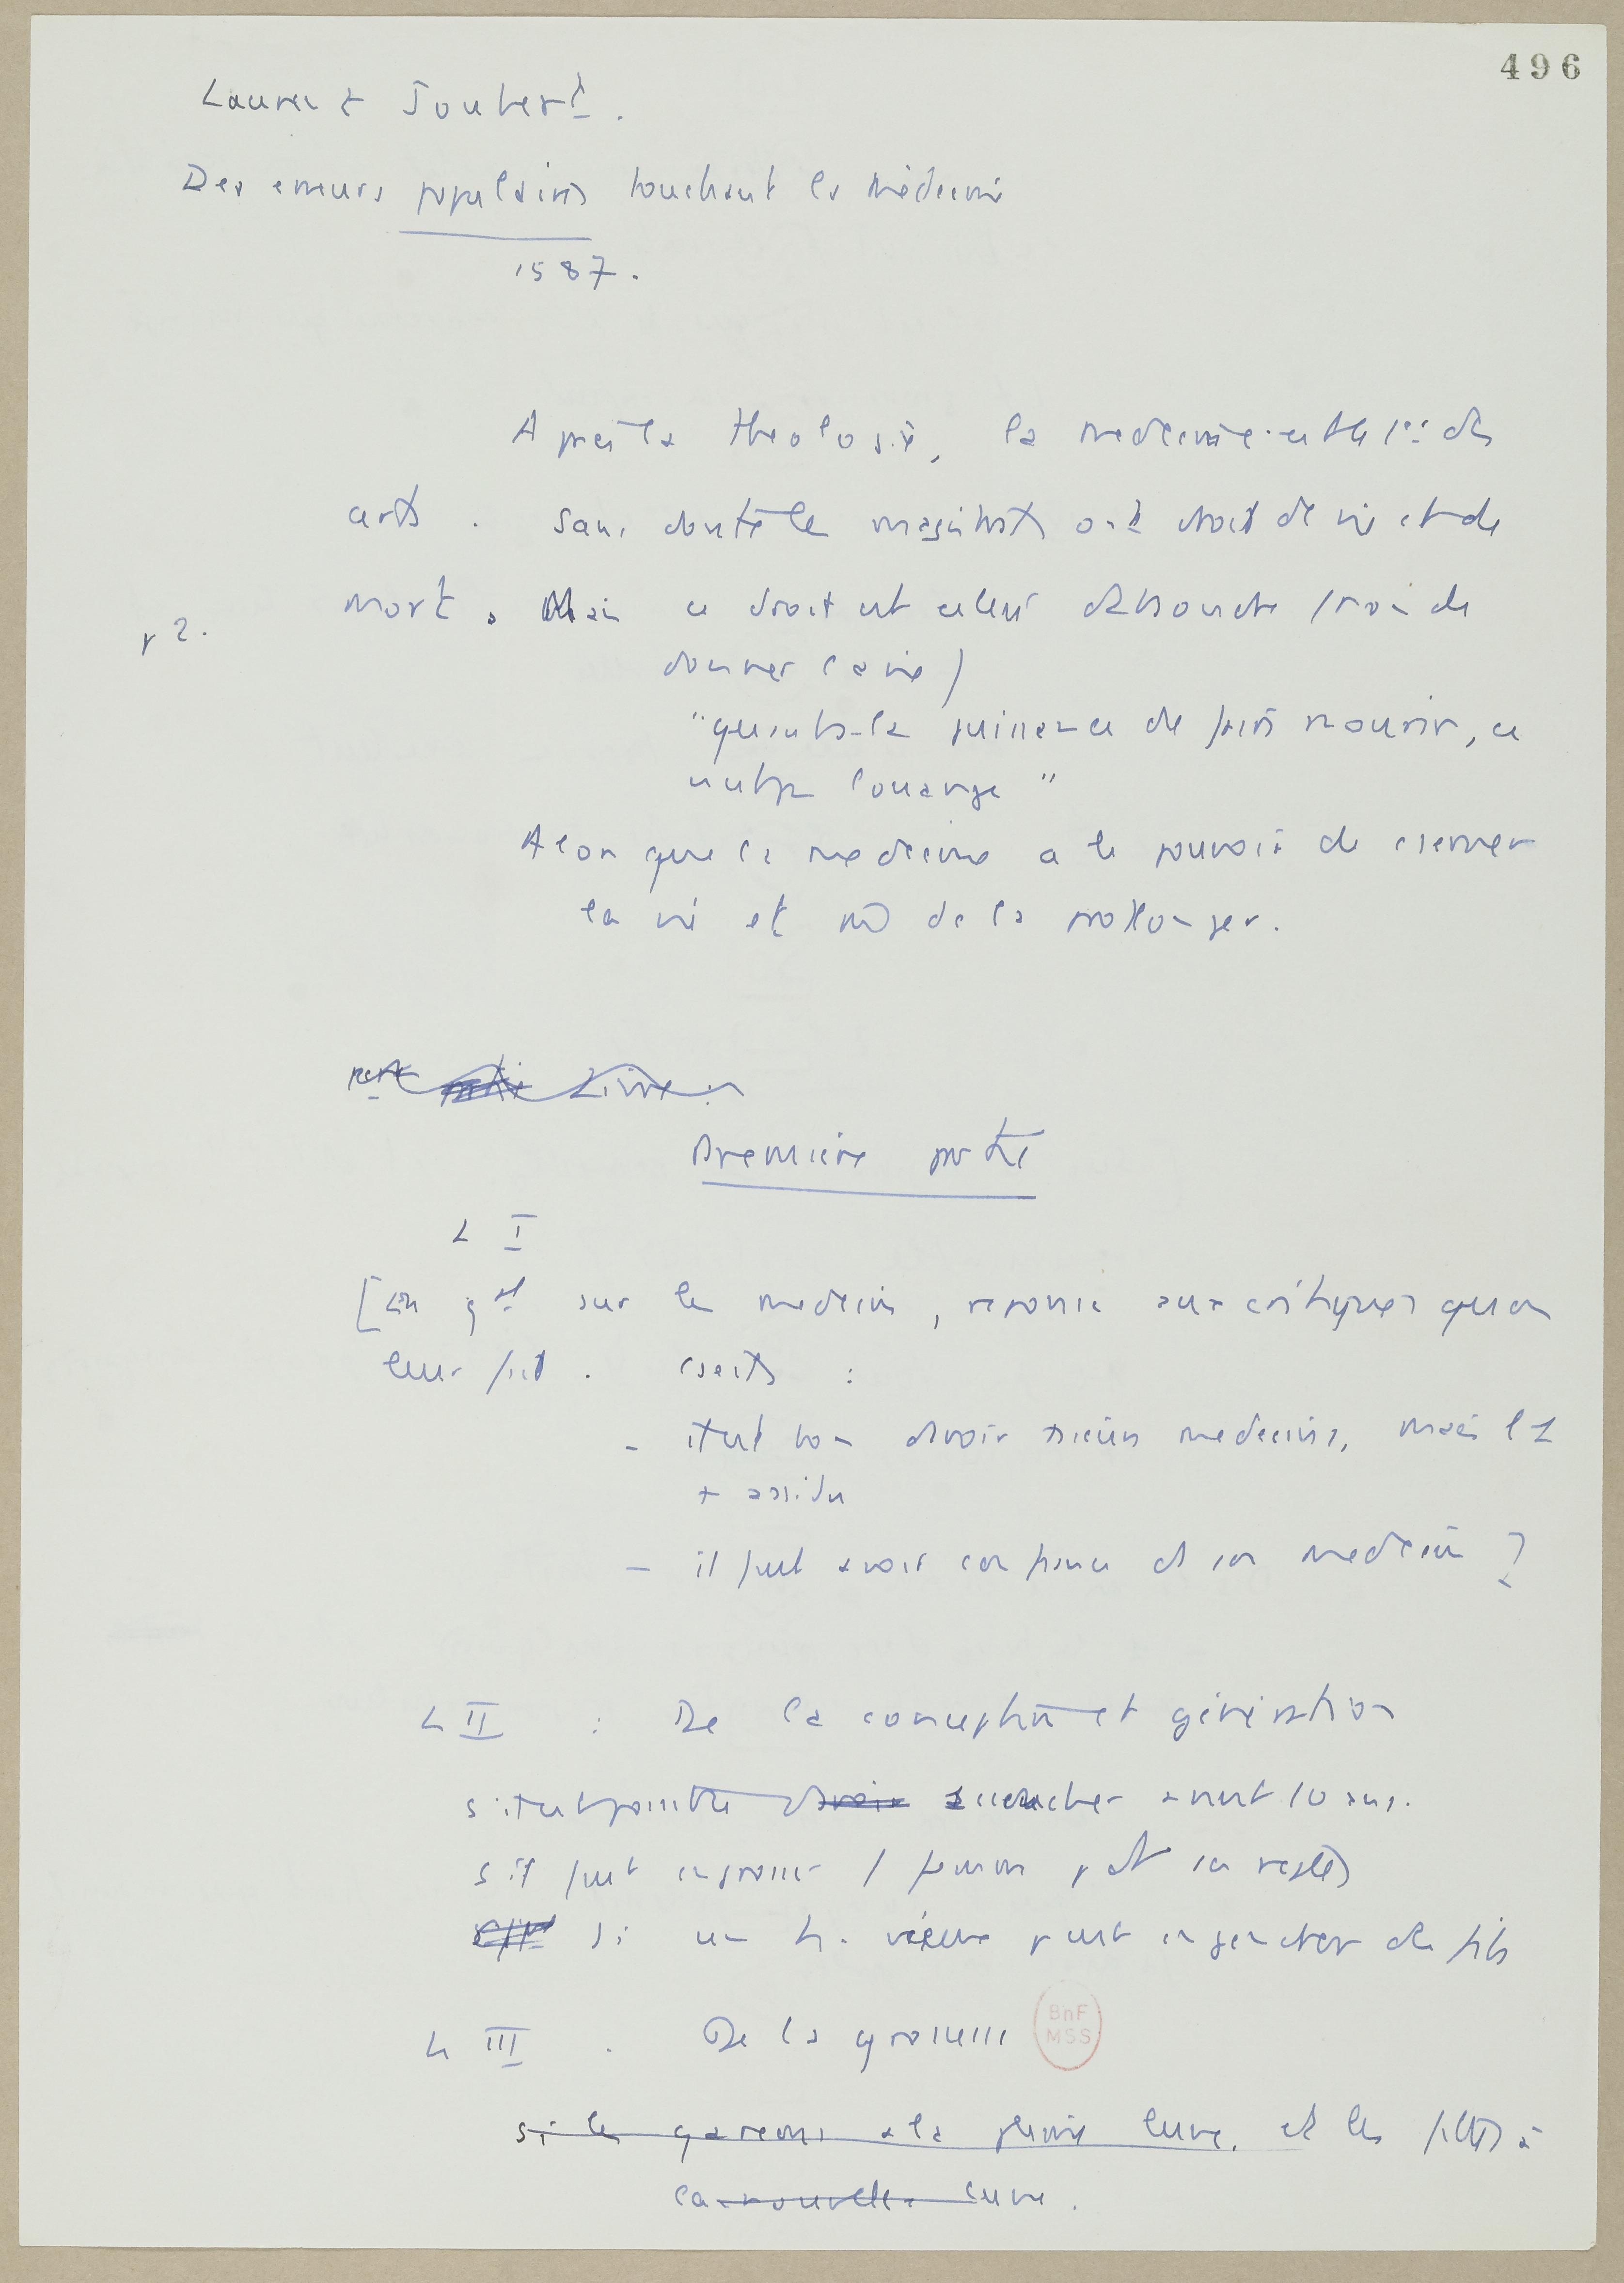 496
Laurent Joubert.
Des erreurs populaires touchant la médecine
1587.
Après la theologie, la medecine est le 1er des
arts. Sans doute les magistrats ont droit de vie et de
mort. Mais ce droit est celui de (non de
p 2.
donner la vie)
"quant à la puissance de faire mourir, ce
n'est pas louange"
Alors que la medecine a le pouvoir de conserver
la vie et de la prolonger.
Livre
Première partie
L I
[En gal sur les medecins, reponse aux critiques qu'on
leur fait. :
- il est bon d'avoir medecins, mais 1
+ assidu
- il faut avoir confiance en son medecin ?
L II : De la conception et génération
s'il est possible d'avoir accoucher avant 10 ans.
s'il peut engrosser 1 femme ses regles
si un h. vieux peut engendrer des fils
L III. De la grossesse
BnF
MSS
si les garcons a la pleine lune, et les filles à
la nouvelle lune.